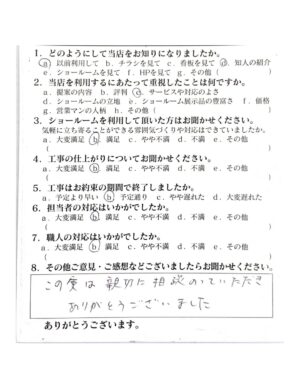 1．どのようにして当店をお知りになりましたか。
a．以前利用して b．チラシを見て c．看板を見て d．知人の紹介
e．ショールームを見て f．HPを見て g．その他（ ）
2．当店を利用するにあたって重視したことは何ですか。
a．提案の内容 b．評判 c．サービスや対応のよさ
d．ショールームの立地 e．ショールーム展示品の豊富さ f．価格
g．営業マンの人柄 h．その他（ ）
3．ショールームを利用して頂いた方はお聞かせください。
気軽に立ち寄ることができる雰囲気づくりや対応はできていましたか。
a．大変満足 b．満足 c．やや不満 d．不満 e．その他（ ）
4．工事の仕上がりについてお聞かせください。
a．大変満足 b．満足 c．やや不満 d．不満 e．その他
（ ）
5．工事はお約束の期間で終了しましたか。
a．予定より早い b．予定通り c．やや遅れた d．大変遅れた
6．担当者の対応はいかがでしたか。
a．大変満足 b．満足 c．やや不満 d．不満 e．その他
（ ）
7．職人の対応はいかがでしたか。
a．大変満足 b．満足 c．やや不満 d．不満 e．その他
（ ）
8．その他ご意見・ご感想などございましたらお聞かせください。
この度は親切に相談のっていただき
ありがとうございました
ありがとうございます。